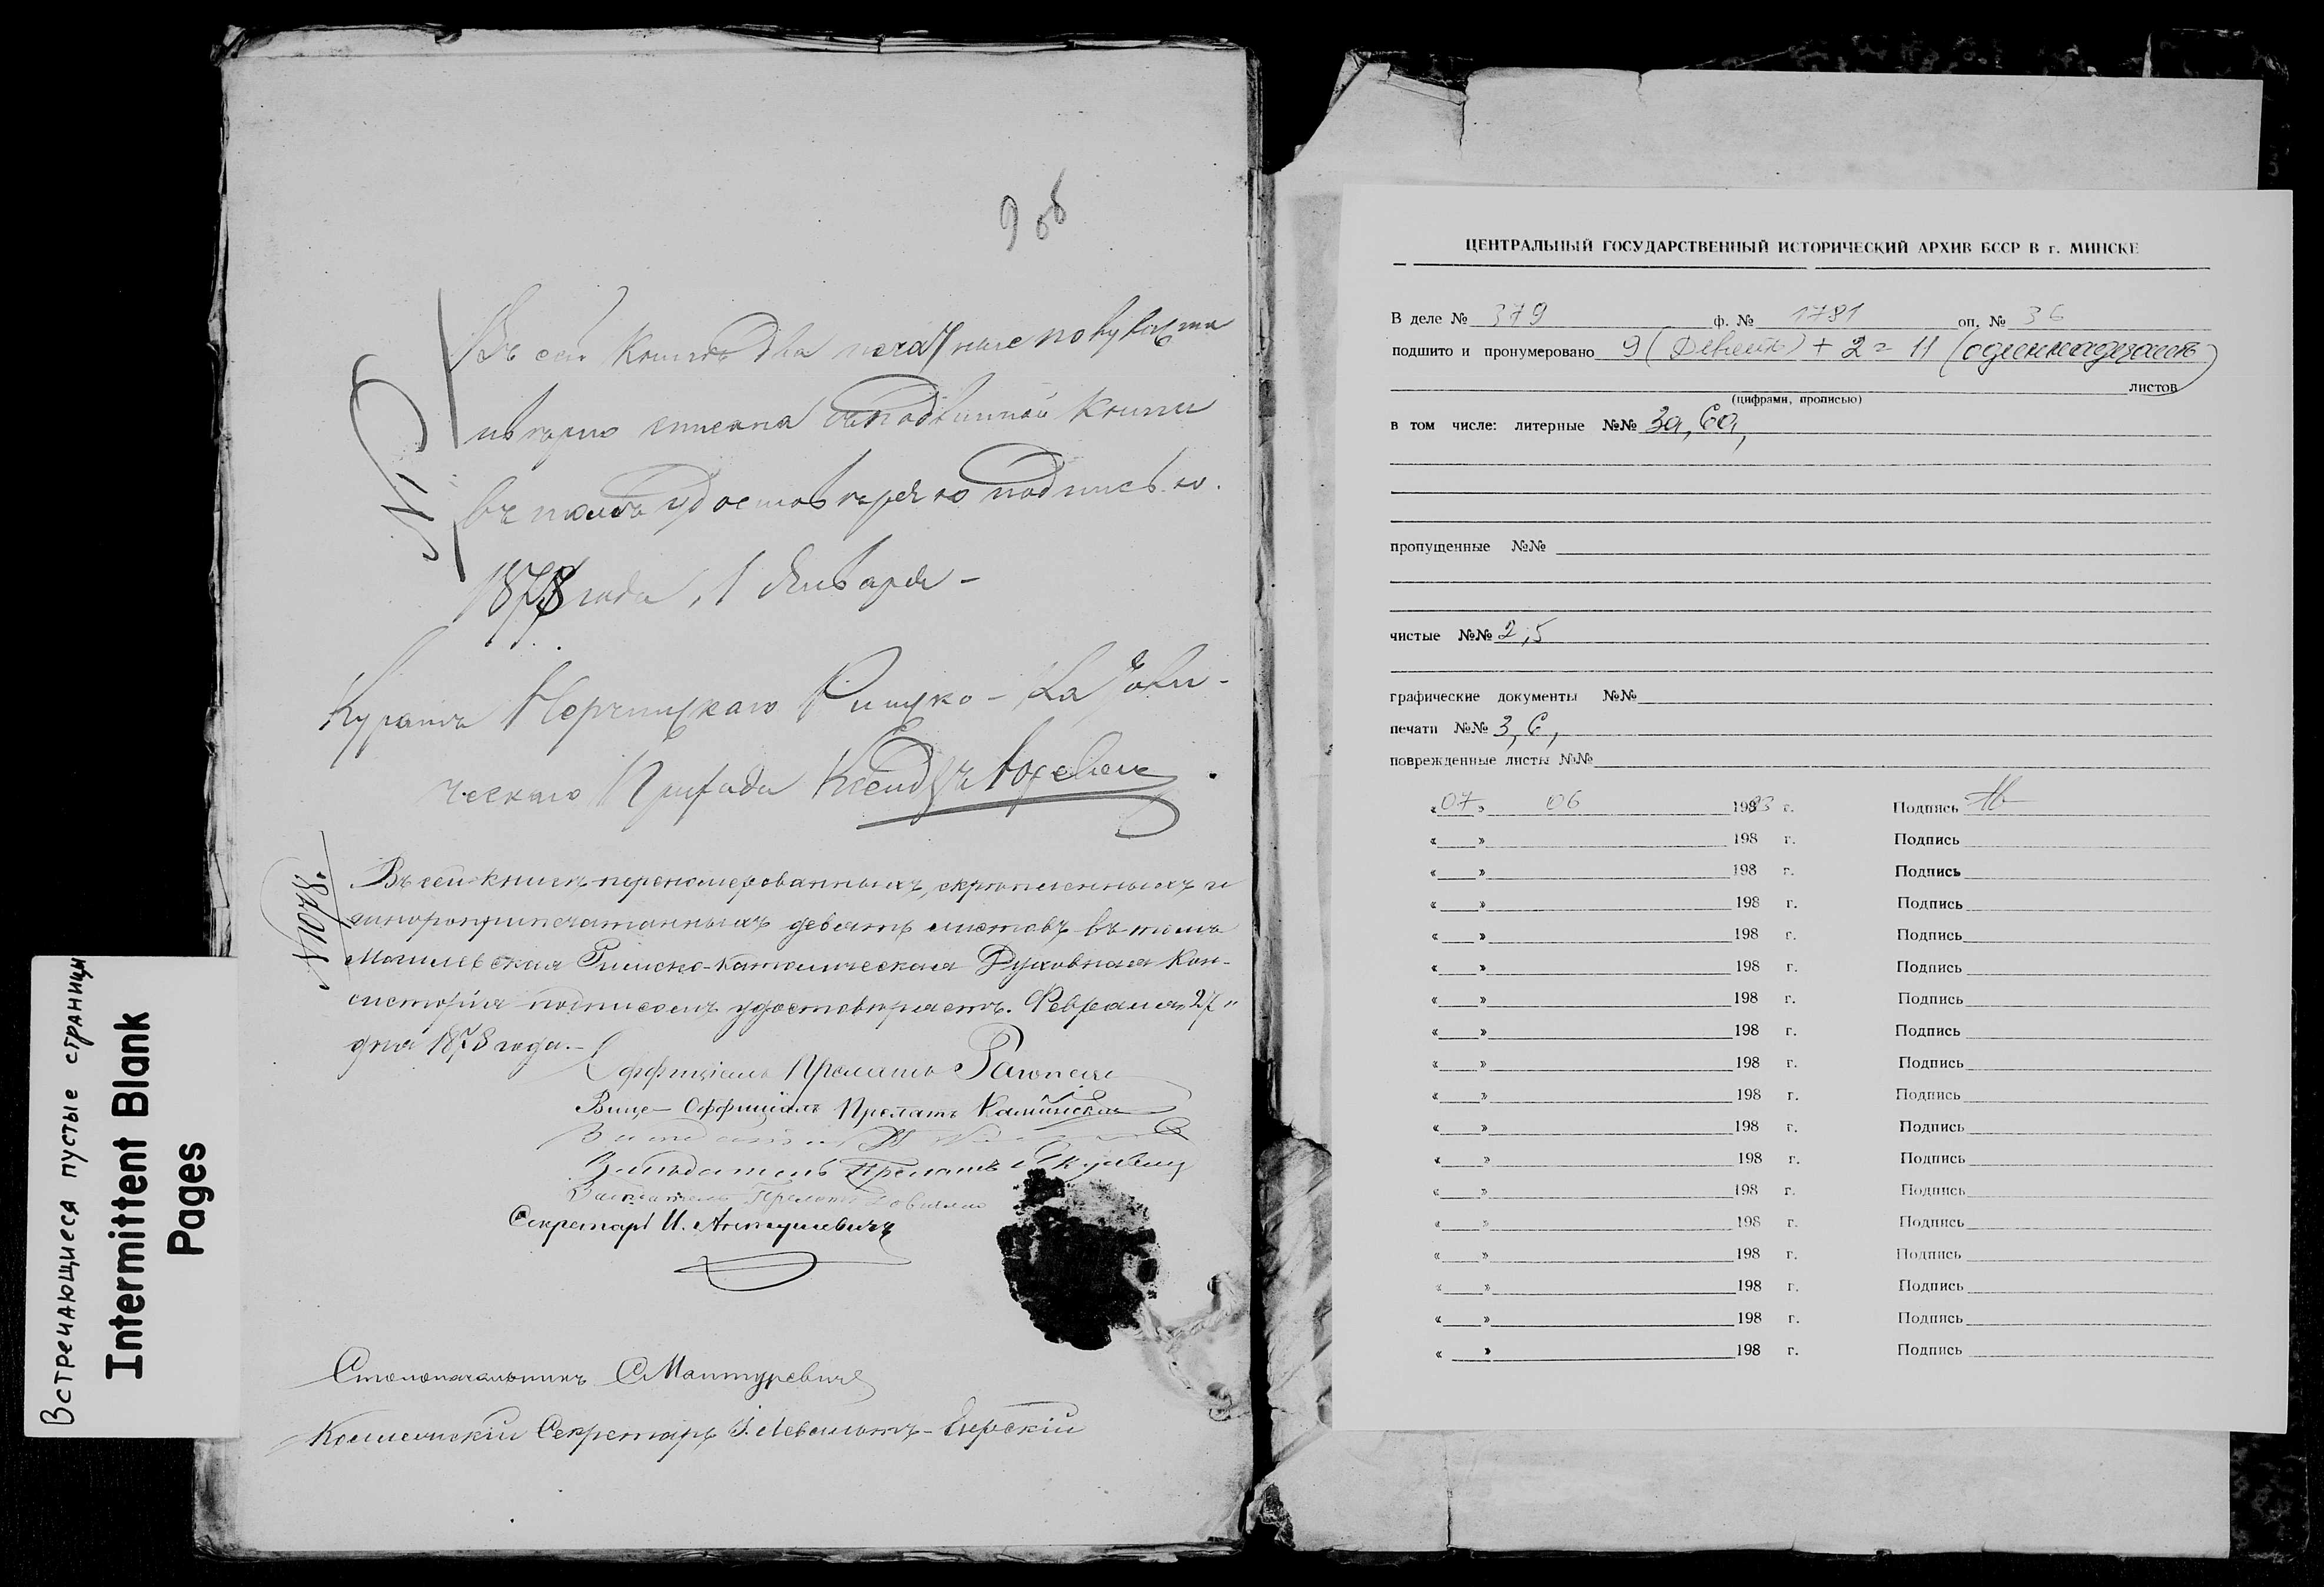 Встречающиеся пустые страницы
Intermittent Blank
Pages
9 об
Въ сей книгѣ два
вѣрно списана съ подлинной книги
въ томъ удостовѣряю подписью.
1878 года, 1 Января –
Куратъ Римско-Католи-
ческаго Прихода Ксендзъ
№ 1078.
Въ сей книгѣ перенумерованныхъ, скрѣпленныхъ и
шнуроприпечатанныхъ девять листовъ въ томъ
Могилевская Римско-Католическая Духовная Кон-
систорія подписомъ удостовѣряетъ. Февраля „27"
дня 1878 года.–
Оффиціалъ Прелатъ
Вице-Оффиціалъ Прелатъ
Засѣдатель Прелатъ
Засѣдатель Прелатъ
Секретарь И.
Столоначальникъ С Мантуревичъ
Секретарь
ЦЕНТРАЛЬНЫЙ ГОСУДАРСТВЕННЫЙ ИСТОРИЧЕСКИЙ АРХИВ БССР В г. МИНСКЕ
В деле № 379 ф. № 1781 оп. № 36
подшито и пронумеровано 9 (Девять) + 2 = 11 (одиннадцать)
листов
(цифрами, прописью)
в том числе: литерные №№ 3а, 6а,
пропущенные №№
чистые №№ 2, 5
графические документы №№
печати №№ 3, 6,
поврежденные листы №№
«07» 06 1983 г. Подпись
« » 198 г. Подпись
« » 198 г. Подпись
« » 198 г. Подпись
« » 198 г. Подпись
« » 198 г. Подпись
« » 198 г. Подпись
« » 198 г. Подпись
« » 198 г. Подпись
« » 198 г. Подпись
« » 198 г. Подпись
« » 198 г. Подпись
« » 198 г. Подпись
« » 198 г. Подпись
« » 198 г. Подпись
« » 198 г. Подпись
« » 198 г. Подпись
« » 198 г. Подпись